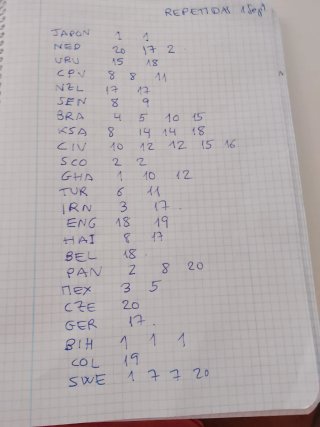 REPETIDAS
JAPON 1 1
NED 20 17 2
URU 15 18
CPV 8 8 11
NZL 17 17
SEN 8 9
BRA 4 5 10 15
KSA 8 14 14 18
CIV 10 12 12 15 16
SCO 2 2
GHA 1 10 12
TUR 6 11
IRN 3 17.
ENG 18 19
HAI 8 17
BEL 18.
PAN 2 8 20
MEX 3 5
CZE 20
GER 17.
BIH 1 1 1
COL 19
SWE 1 7 7 20